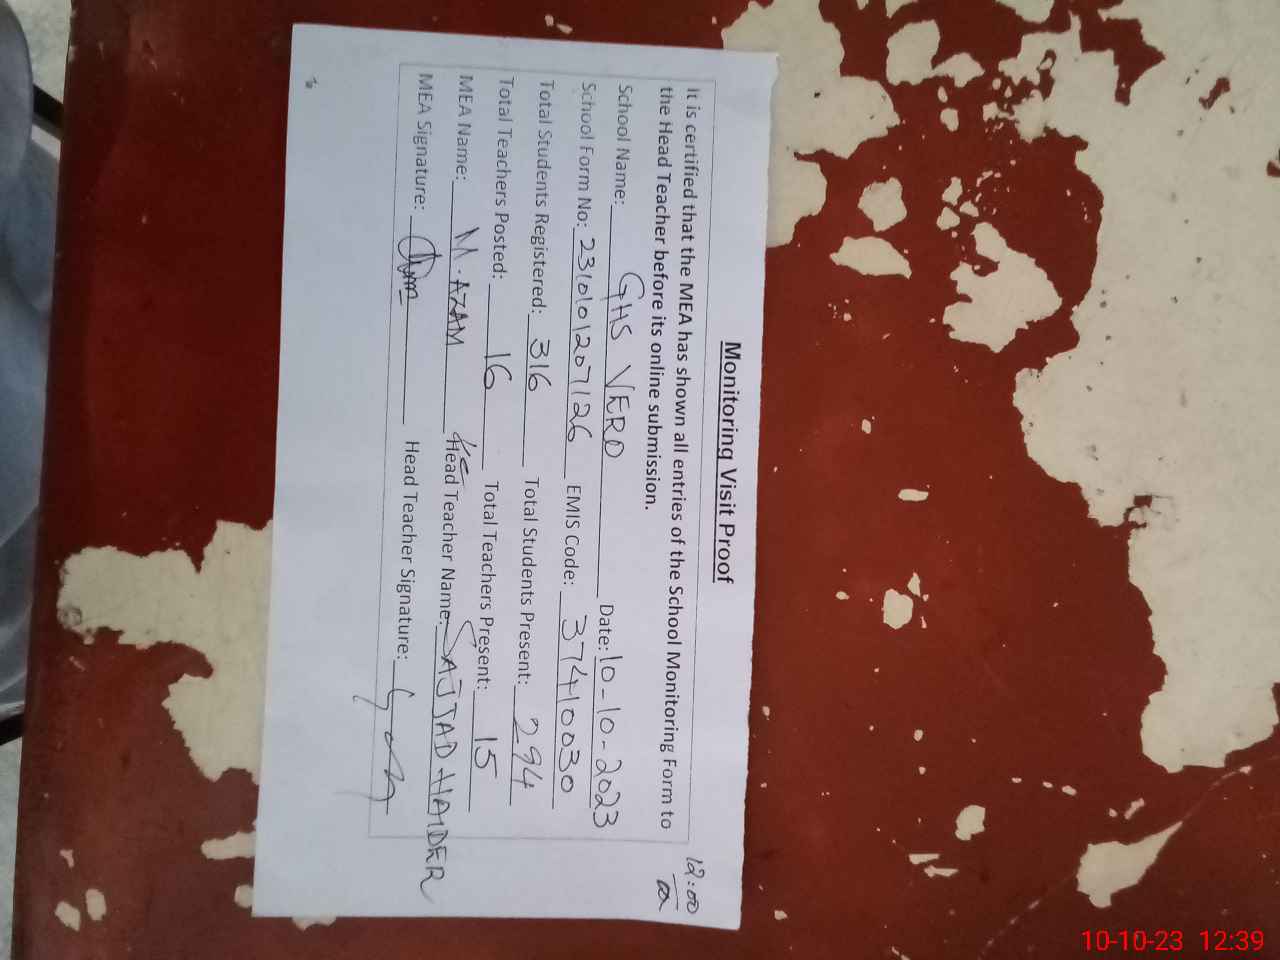 Monitoring Visit Proof
12:00
It is certified that the MEA has shown all entries of the School Monitoring Form to
the Head Teacher before its online submission.
School Name: GHS VERO Date: 10-10-2023
School Form No: 2310101207126 EMIS Code: 37410030
Total Students Registered: 316 Total Students Present: 294
Total Teachers Posted: 16 Total Teachers Present: 15
MEA Name: M. AZAM Head Teacher Name: SAJJAD HAIDER
MEA Signature: Head Teacher Signature:
10-10-23 12:39